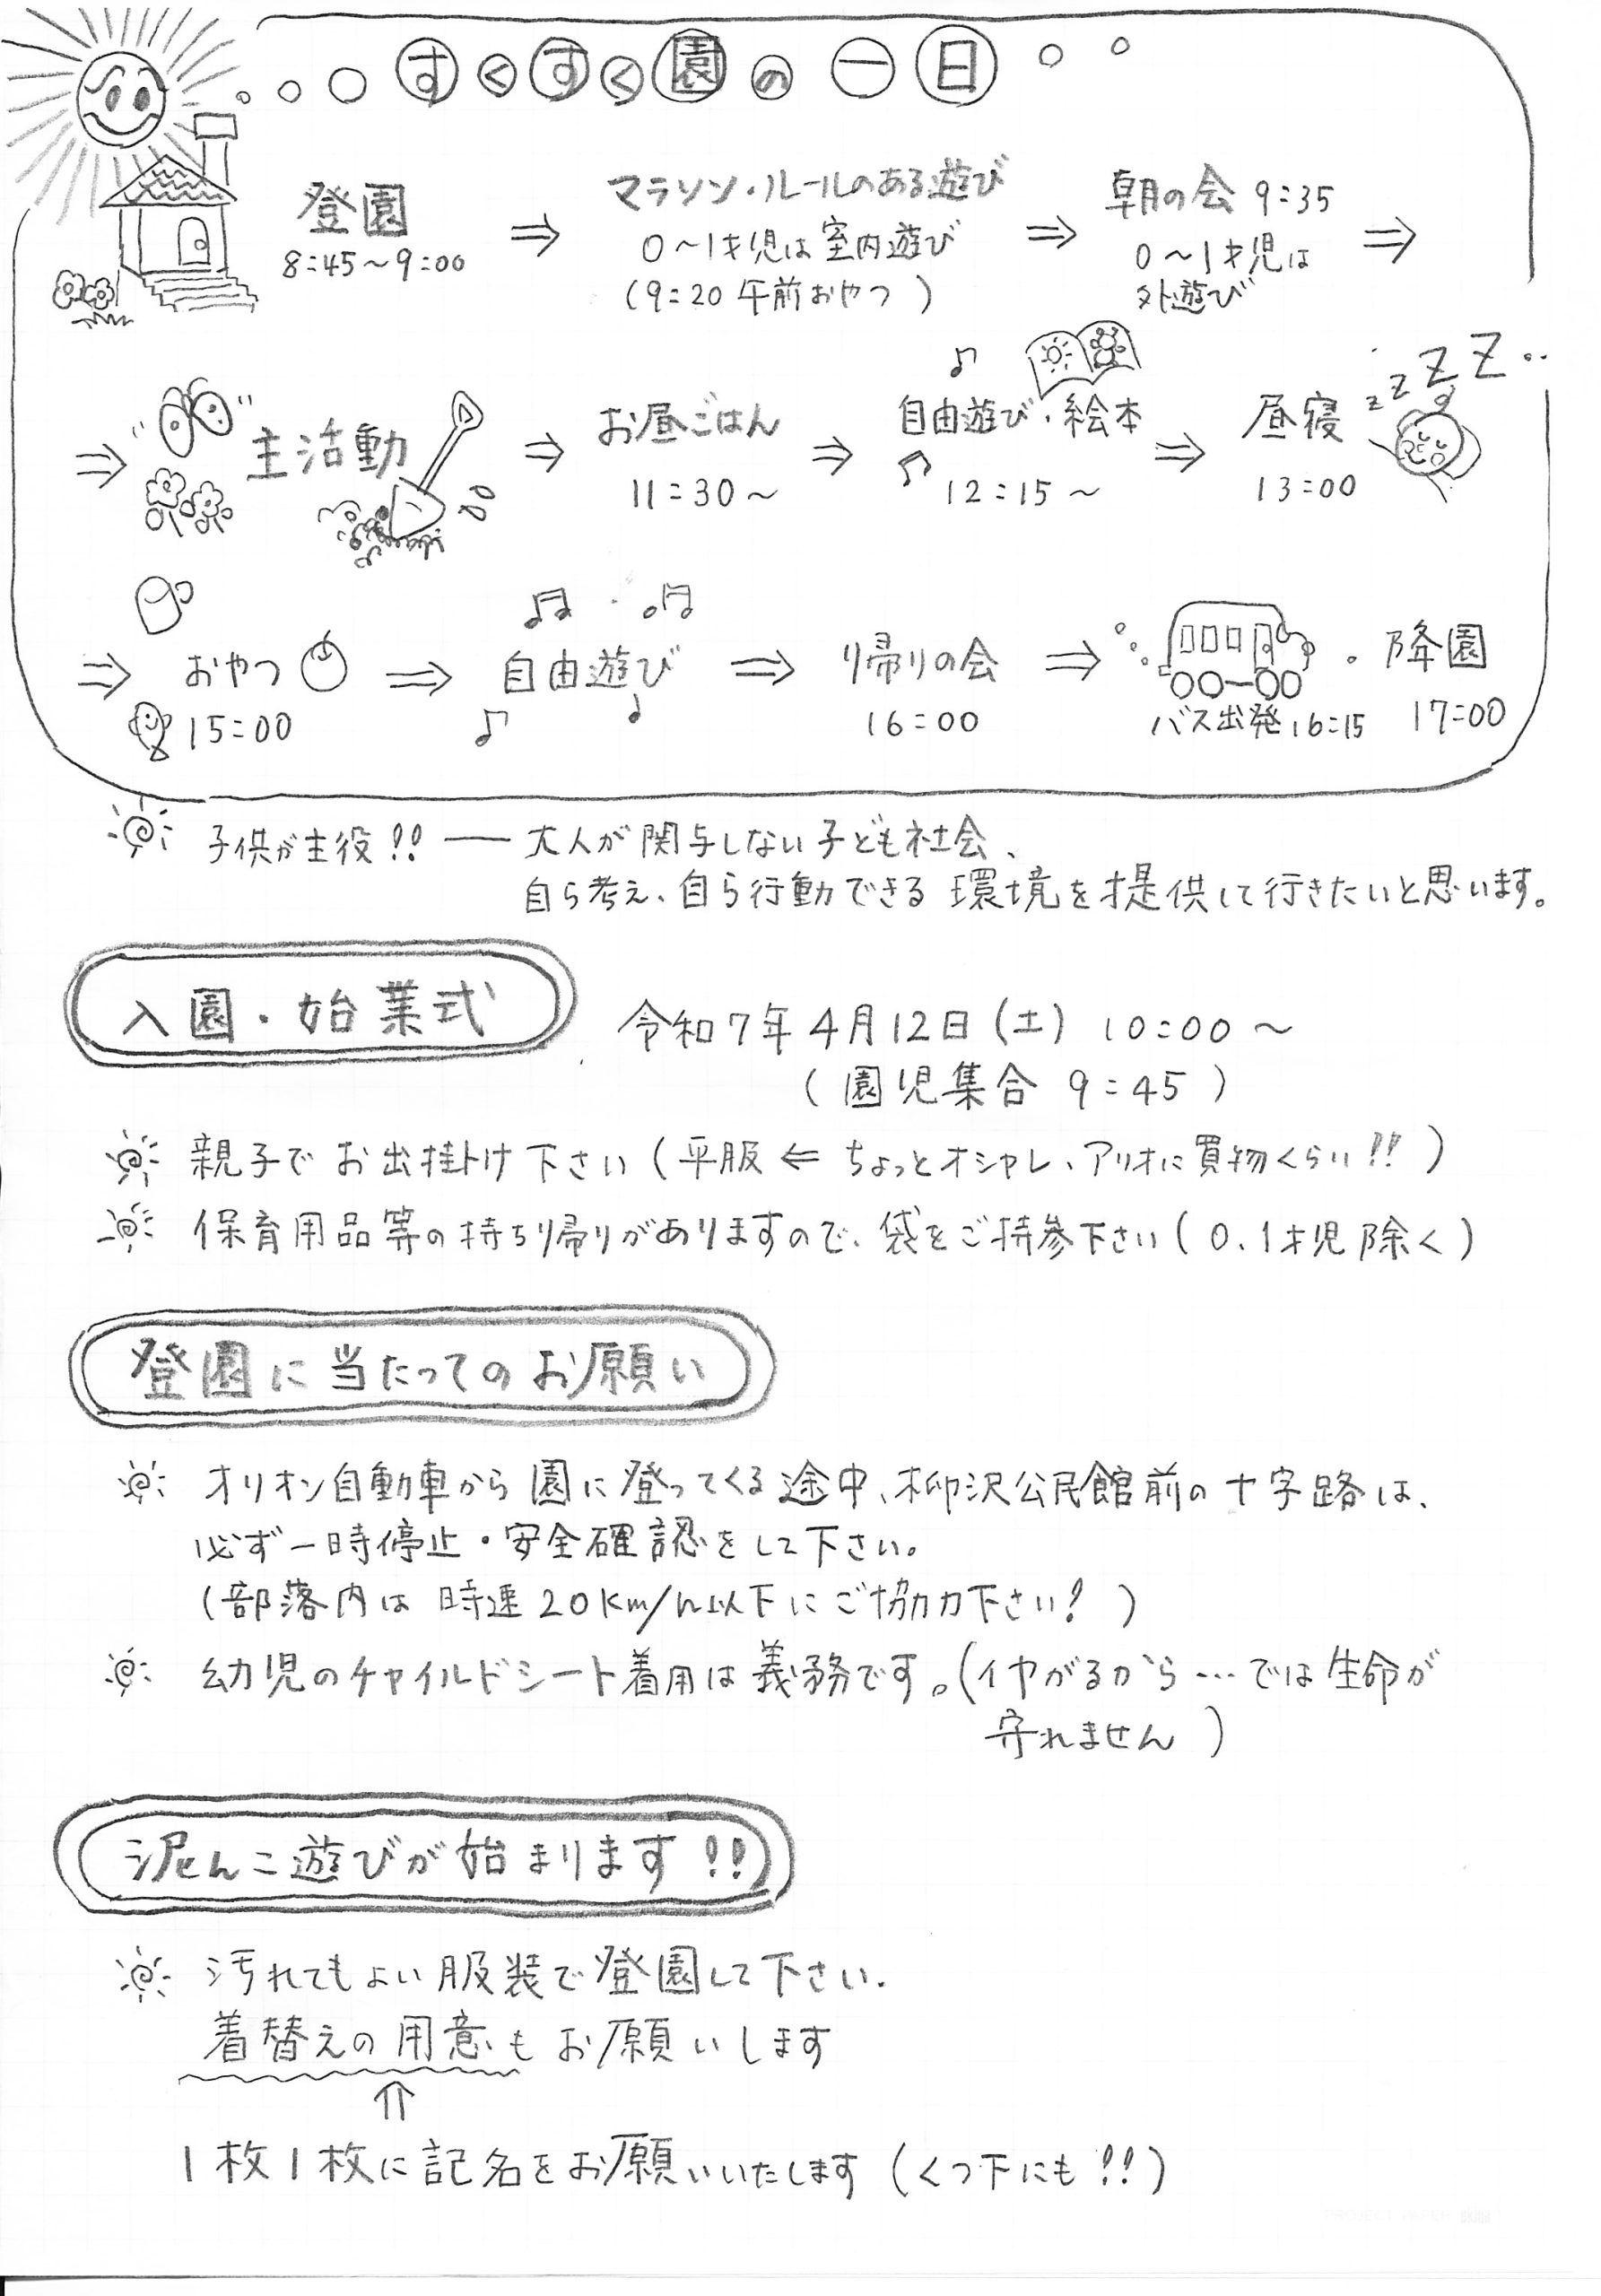 すくすく園の一日
登園
8:45～9:00
⇒
マラソン・ルールのある遊び
0～1才児は室内遊び
(9:20 午前おやつ)
⇒
朝の会 9:35
0～1才児は
外遊び
⇒
⇒ 主活動
⇒ お昼ごはん
11:30～
⇒ 自由遊び・絵本
12:15～
⇒ 昼寝
13:00
zzZZ‥
⇒ おやつ
15:00
⇒ 自由遊び
⇒ 帰りの会
16:00
⇒ バス出発 16:15
・降園
17:00
子供が主役!! ― 大人が関与しない子ども社会、
自ら考え、自ら行動できる環境を提供して行きたいと思います。
入園・始業式
令和7年4月12日(土) 10:00～
(園児集合 9:45)
親子でお出掛け下さい(平服⇐ちょっとオシャレ、アリオに買物くらい!!)
保育用品等の持ち帰りがありますので、袋をご持参下さい(0、1才児除く)
登園に当たってのお願い
オリオン自動車から園に登ってくる途中、柳沢公民館前の十字路は、
必ず一時停止・安全確認をして下さい。
(部落内は時速20Km/h以下にご協力下さい!)
幼児のチャイルドシート着用は義務です。(イヤがるから…では生命が
守れません)
泥んこ遊びが始まります!!
汚れてもよい服装で登園して下さい.
着替えの用意もお願いします
⇑
1枚1枚に記名をお願いいたします(くつ下にも!!)